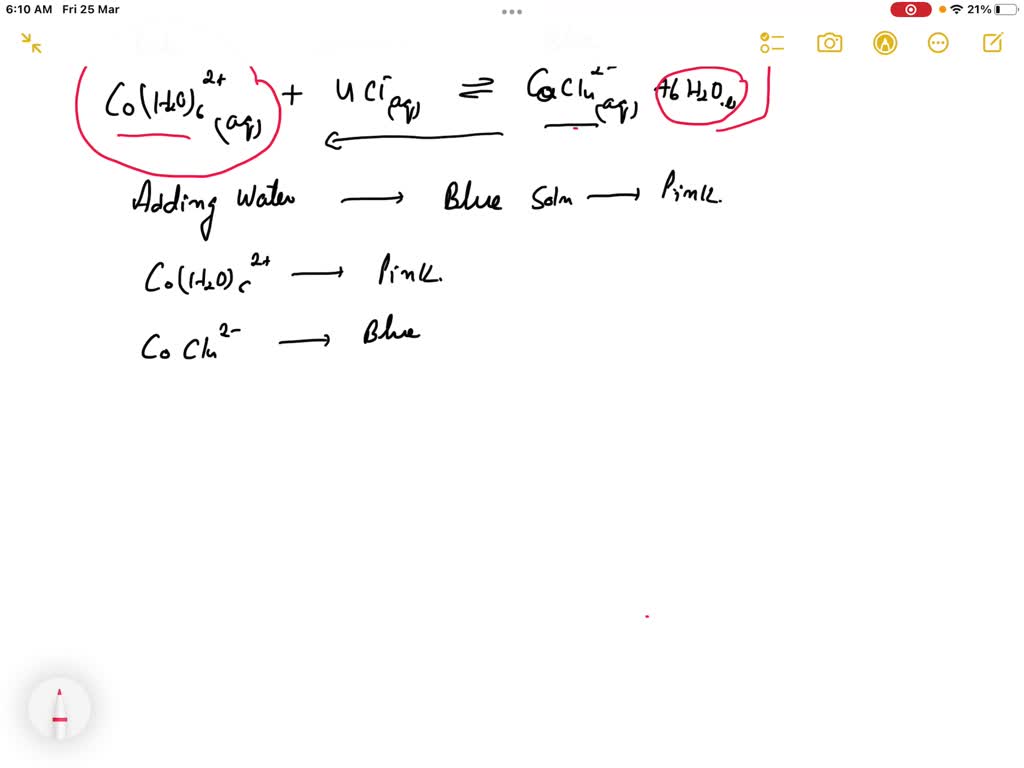 6:10 AM Fri 25 Mar 21%
Co(H₂O)₆²⁺(aq) + 4Cl⁻(aq) ⇌ CoCl₄²⁻(aq) + 6H₂O
Adding Water → Blue Soln → Pink.
Co(H₂O)₆²⁺ → Pink.
CoCl₄²⁻ → Blue